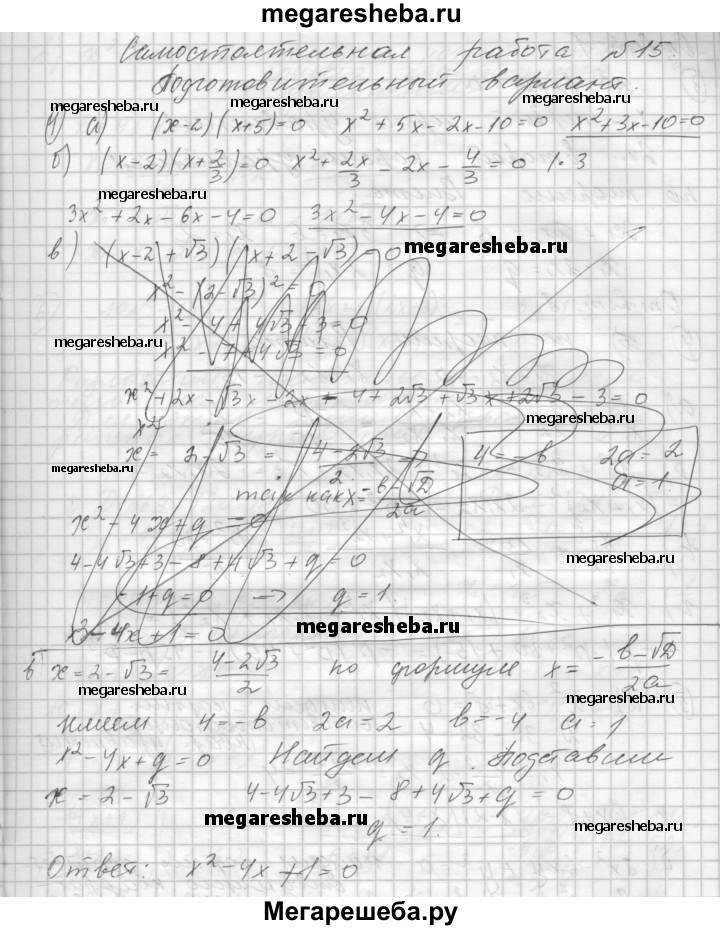 megaresheba.ru
Самостоятельная работа №15.
Подготовительный вариант.
megaresheba.ru megaresheba.ru megaresheba.ru
1) а) (x-2)(x+5)=0 x²+5x-2x-10=0 x²+3x-10=0
б) (x-2)(x+2/3)=0 x²+2x/3-2x-4/3=0 |·3
megaresheba.ru
3x²+2x-6x-4=0 3x²-4x-4=0
megaresheba.ru
в) (x-2+√3)(x+2-√3)=0
x²-(2-√3)²=0
x²-4+4√3+3=0
megaresheba.ru
x²-7+4√3=0
x²+2x-√3x-2x-4+2√3+√3x+2√3-3=0
megaresheba.ru
x²
x=2-√3=(4-2√3)/2 4=-b 2a=2
megaresheba.ru
a=1.
так как x=(-b-√D)/2a
x²-4x+q=0
4-4√3+3-8+4√3+q=0
megaresheba.ru
-1+q=0 → q=1.
x²-4x+1=0
megaresheba.ru
в x=2-√3=(4-2√3)/2 по формуле x=(-b-√D)/2a
megaresheba.ru megaresheba.ru
имеем 4=-b 2a=2 b=-4 a=1
x²-4x+q=0 Найдем q. Подставим
x=2-√3 4-4√3+3-8+4√3+q=0
megaresheba.ru megaresheba.ru
q=1.
Ответ: x²-4x+1=0
Мегарешеба.ру